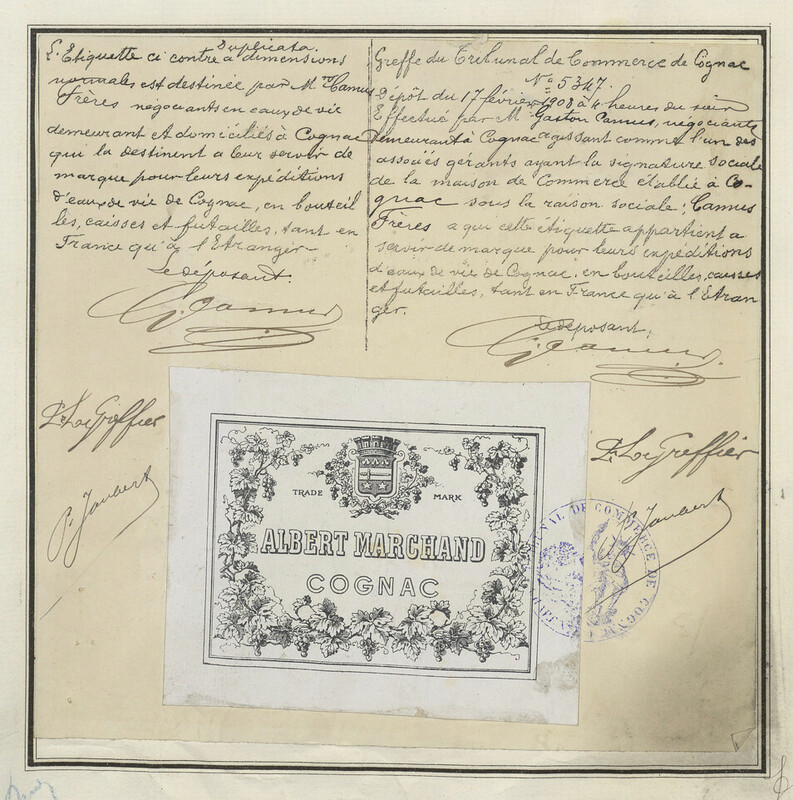 Duplicata.
L'Etiquette ci contre à dimensions
normales est destinée par M.rs Camus
Frères négociants en eaux de vie
demeurant et domiciliés à Cognac
qui la destinent a leur servir de
marque pour leurs expéditions
d'eaux de vie de Cognac, en bouteil
les, caisses et futailles, tant en
France qu'à l'Etranger-
le déposant.
G. Camus
P. Le Greffier
P. Jaubert
Greffe du Tribunal de Commerce de Cognac
No 5347.
Dépôt du 17 février 1908 à 4 heures du soir
Effectué par Mr Gaston Camus, négociant
demeurant à Cognac agissant comme l'un des
associés gérants ayant la signature sociale
de la maison de Commerce établie à Co-
gnac sous la raison sociale; Camus
Frères a qui cette étiquette appartient a
servir de marque pour leurs expéditions
d'eaux de vie de Cognac, en bouteilles, caisses
et futailles, tant en France qu'à l'Etran
ger.
le déposant,
G. Camus
P. Le Greffier
P. Jaubert
TRADE MARK
ALBERT MARCHAND
COGNAC
TRIBUNAL DE COMMERCE DE COGNAC